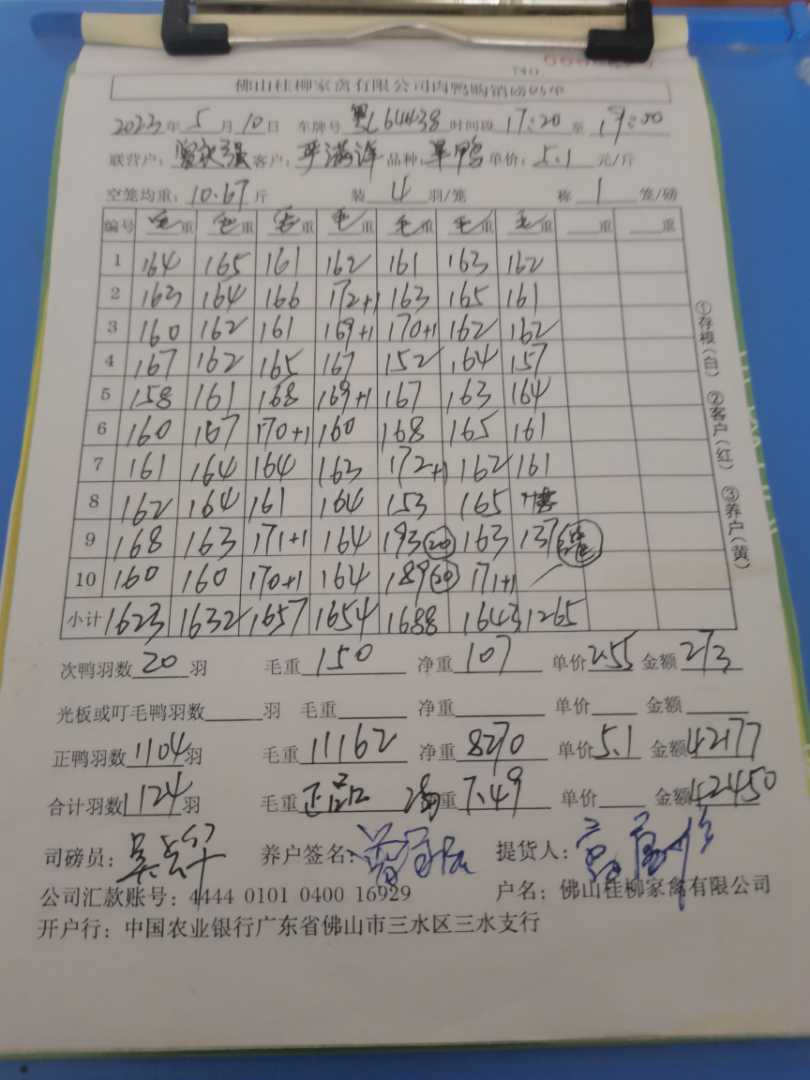 佛山桂柳家禽有限公司肉鸭购销磅码单
2023年5月10日 车牌号 粤L64438 时间段 17:20 至 19:00
联营户: 客户: 严满洋 品种: 旱鸭 单价: 5.1 元/斤
空笼均重: 10.67 斤 装 4 羽/笼 称 1 笼/磅
编号 毛重 毛重 毛重 毛重 毛重 毛重 毛重 重 重
1 164 165 161 162 161 163 162
2 163 164 166 172+1 163 165 161
3 160 162 161 169+1 170+1 162 162
4 167 162 165 167 152 164 157
5 158 161 168 169+1 167 163 164
6 160 167 170+1 160 168 165 161
7 161 164 164 163 172+1 162 161
8 162 164 161 164 153 165
9 168 163 171+1 164 193(20) 163 137
10 160 160 170+1 164 189(20) 171+1
小计 1623 1632 1657 1654 1688 1643 1265
①存根(白) ②客户(红) ③养户(黄)
次鸭羽数 20 羽 毛重 150 净重 107 单价 2.55 金额 273
光板或叮毛鸭羽数 羽 毛重 净重 单价 金额
正鸭羽数 1104 羽 毛重 11162 净重 8270 单价 5.1 金额 42177
合计羽数 1124 羽 毛重 正品 净重 7.49 单价 金额 42450
司磅员: 养户签名: 提货人:
公司汇款账号: 4444 0101 0400 16929 户名: 佛山桂柳家禽有限公司
开户行: 中国农业银行广东省佛山市三水区三水支行